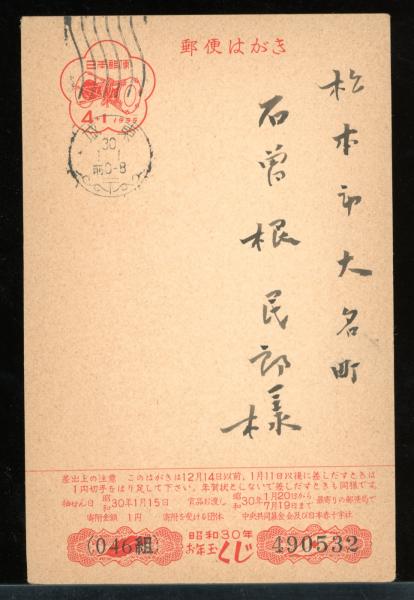 郵便はがき
日本郵便
4+1 1955
30
前0-8
松本市大名町
石曽根民郎様
差出上の注意 このはがきは12月14日以前、1月11日以後に差しだすときは
1円切手をはり足して下さい。年賀状としないで差しだすときも同様です。
抽せん日 昭和30年1月15日 賞品お渡し 昭和30年1月20日から7月19日まで 最寄りの郵便局で
寄附金額 1円 寄附を受ける団体 中央共同募金会及び日本赤十字社
昭和30年
お年玉くじ
046組
490532